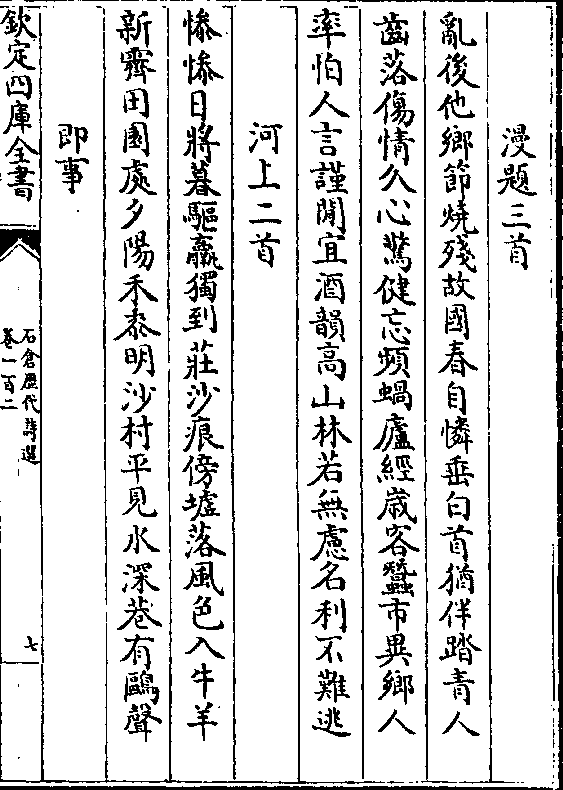 漫題三首
亂後他鄉節燒殘故國春自憐垂白首猶伴踏青人
齒落傷情久心驚健忘頻蝸廬經歲客蠶市異鄉人
率怕人言謹閒宜酒韻高山林若無慮名利不難逃
河上二首
慘慘日將暮驅羸獨到莊沙痕傍墟落風色入牛羊
新霽田園處夕陽禾黍明沙村平見水深巷有鷗聲
即事
欽定四庫全書
石倉歷代詩選
卷一百二
七